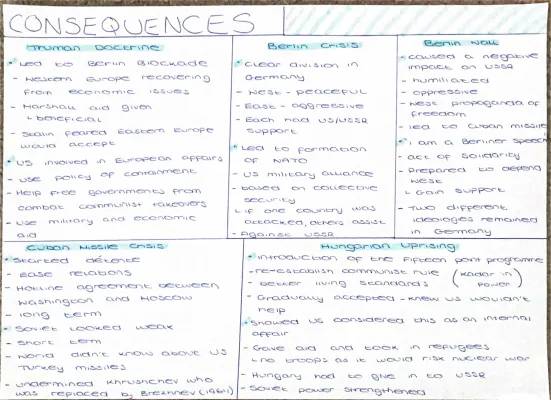 CONSEQUENCES
Truman Doctrine
* Led to Berlin Blockade
- Western Europe recovering
from economic issues
- Marshall aid given
↳ beneficial
- Stalin feared Eastern Europe
would accept
* US involved in European affairs
- use policy of containment
- Help free governments from
combat communist takeovers
- use military and economic
aid
Berlin Crisis
* Clear division in
Germany
- West - peaceful
- East - aggressive
- Each had US/USSR
support
* Led to formation
of NATO
- US military alliance
- based on collective
security
↳ if one country was
attacked, others assist
- Against USSR
Berlin Wall
* caused a negative
impact on USSR
- humiliated
- oppressive
- West propaganda of
freedom
- led to Cuban missile
* I am a Berliner speech
- act of solidarity
- Prepared to defend
West
↳ Gain support
- Two different
ideologies remained
in Germany
Cuban Missile Crisis
* Started détente
- Ease relations
- Hotline agreement between
Washington and Moscow
- long term
* Soviet looked weak
- short term
- World didn't know about US
Turkey missiles
- undermined Khrushchev who
was replaced by Brezhnev (1964)
Hungarian Uprising
* Introduction of the Fifteen point programme
- re-establish communist rule (Kadar in power)
- better living standards
- Gradually accepted - knew US wouldn't
help
* Showed US considered this as an internal
affair
- Gave aid and took in refugees
↳ no troops as it would risk nuclear war
- Hungary had to give in to USSR
- Soviet power strengthened